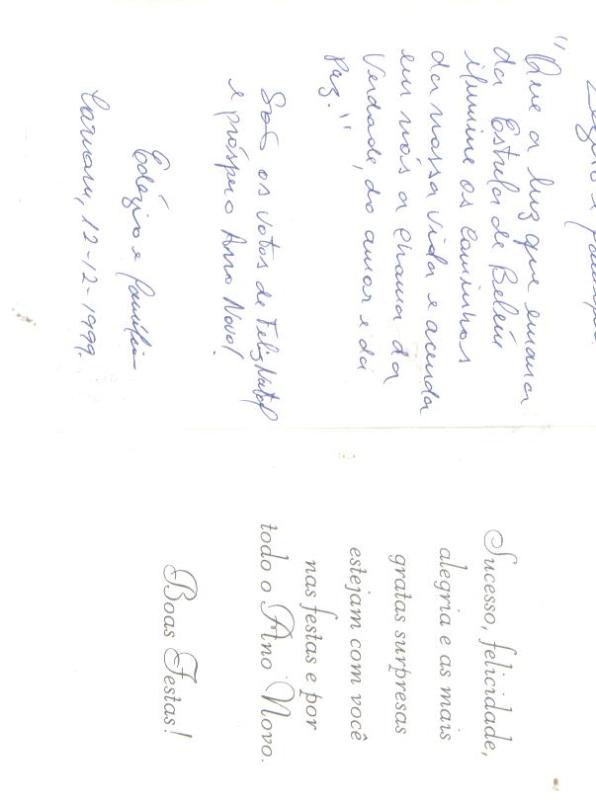 e família
"Que a luz que emana
da Estrela de Belém
ilumine os caminhos
da nossa vida e acenda
em nós a chama da
Verdade, do amor e da
Paz."
São os votos de Feliz Natal
e próspero Ano Novo!
e família
12-12-1999.
Sucesso, felicidade,
alegria e as mais
gratas surpresas
estejam com você
nas festas e por
todo o Ano Novo.
Boas Festas!